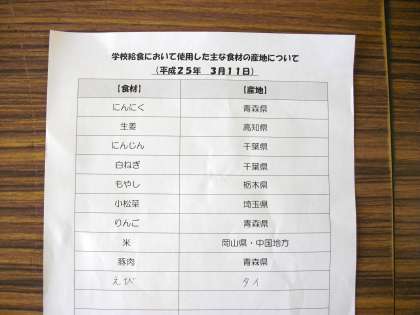 学校給食において使用した主な食材の産地について
（平成２５年　３月１１日）
【食材】　【産地】
にんにく　青森県
生姜　高知県
にんじん　千葉県
白ねぎ　千葉県
もやし　栃木県
小松菜　埼玉県
りんご　青森県
米　岡山県・中国地方
豚肉　青森県
えび　タイ